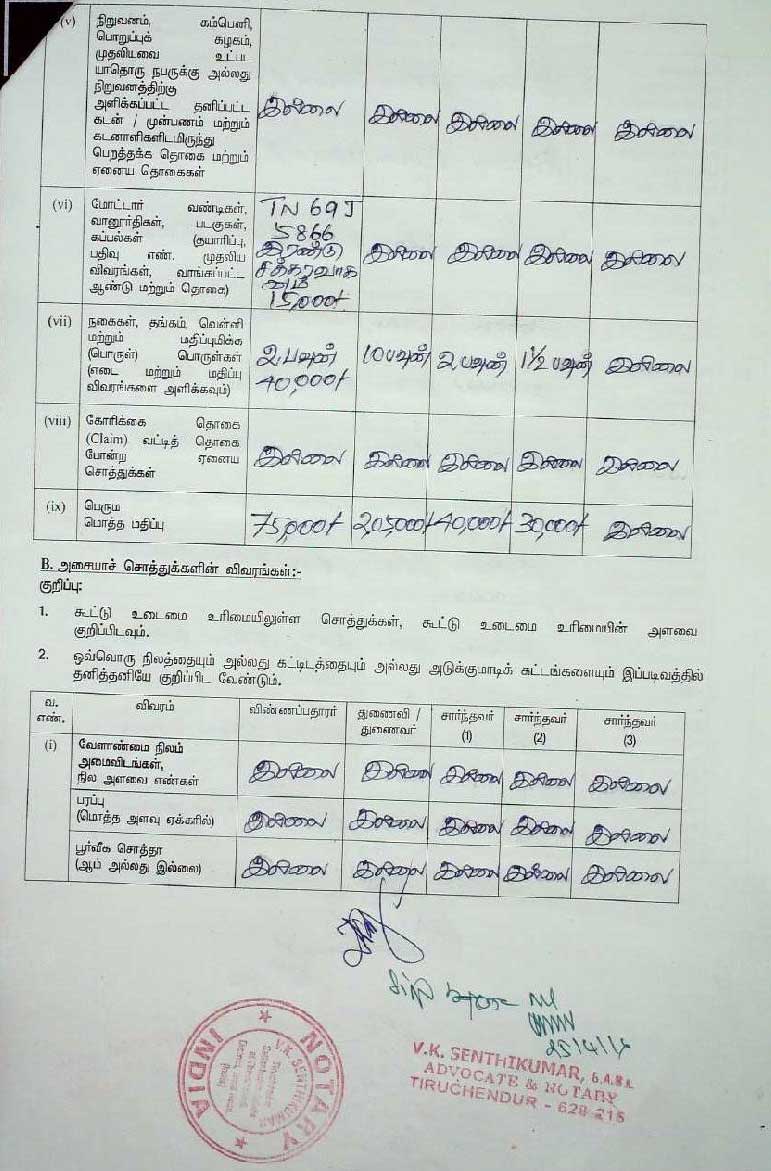 (v) நிறுவனம், கம்பெனி,
பொறுப்புக் கழகம்,
முதலியவை உட்பட
யாதொரு நபருக்கு அல்லது
நிறுவனத்திற்கு
அளிக்கப்பட்ட தனிப்பட்ட
கடன் / முன்பணம் மற்றும்
கடனாளிகளிடமிருந்து
பெறத்தக்க தொகை மற்றும்
ஏனைய தொகைகள்
இல்லை இல்லை இல்லை இல்லை இல்லை
(vi) மோட்டார் வண்டிகள்,
வானூர்திகள், படகுகள்,
கப்பல்கள் (தயாரிப்பு,
பதிவு எண். முதலிய
விவரங்கள், வாங்கப்பட்ட
ஆண்டு மற்றும் தொகை)
TN 69J
5866
இரண்டு
சக்கரவாக
னம்
15,000/-
இல்லை இல்லை இல்லை இல்லை
(vii) நகைகள், தங்கம், வெள்ளி
மற்றும் மதிப்புமிக்க
(பொருள்) பொருள்கள்
(எடை மற்றும் மதிப்பு
விவரங்களை அளிக்கவும்)
2. பவுன்
40,000/-
10 பவுன் 2. பவுன் 1 1/2 பவுன் இல்லை
(viii) கோரிக்கை தொகை
(Claim) வட்டித் தொகை
போன்ற ஏனைய
சொத்துக்கள்
இல்லை இல்லை இல்லை இல்லை இல்லை
(ix) பெரும
மொத்த மதிப்பு
75,000/- 2,05,000/- 40,000/- 30,000/- இல்லை
B. அசையாச் சொத்துக்களின் விவரங்கள்:-
குறிப்பு:
1. கூட்டு உடைமை உரிமையிலுள்ள சொத்துக்கள், கூட்டு உடைமை உரிமையின் அளவை
குறிப்பிடவும்.
2. ஒவ்வொரு நிலத்தையும் அல்லது கட்டிடத்தையும் அல்லது அடுக்குமாடிக் கட்டங்களையும் இப்படிவத்தில்
தனித்தனியே குறிப்பிட வேண்டும்.
வ.
எண்.
விவரம்
விண்ணப்பதாரர்
துணைவி /
துணைவர்
சார்ந்தவர்
(1)
சார்ந்தவர்
(2)
சார்ந்தவர்
(3)
(i) வேளாண்மை நிலம்
அமைவிடங்கள்,
நில அளவை எண்கள்
இல்லை இல்லை இல்லை இல்லை இல்லை
பரப்பு
(மொத்த அளவு ஏக்கரில்)
இல்லை இல்லை இல்லை இல்லை இல்லை
பூர்வீக சொத்தா
(ஆம் அல்லது இல்லை)
இல்லை இல்லை இல்லை இல்லை இல்லை
V.K. SENTHIKUMAR, B.A.B.L
ADVOCATE & NOTARY
TIRUCHENDUR - 628 215
NOTARY
INDIA
V.K. SENTHIKUMAR